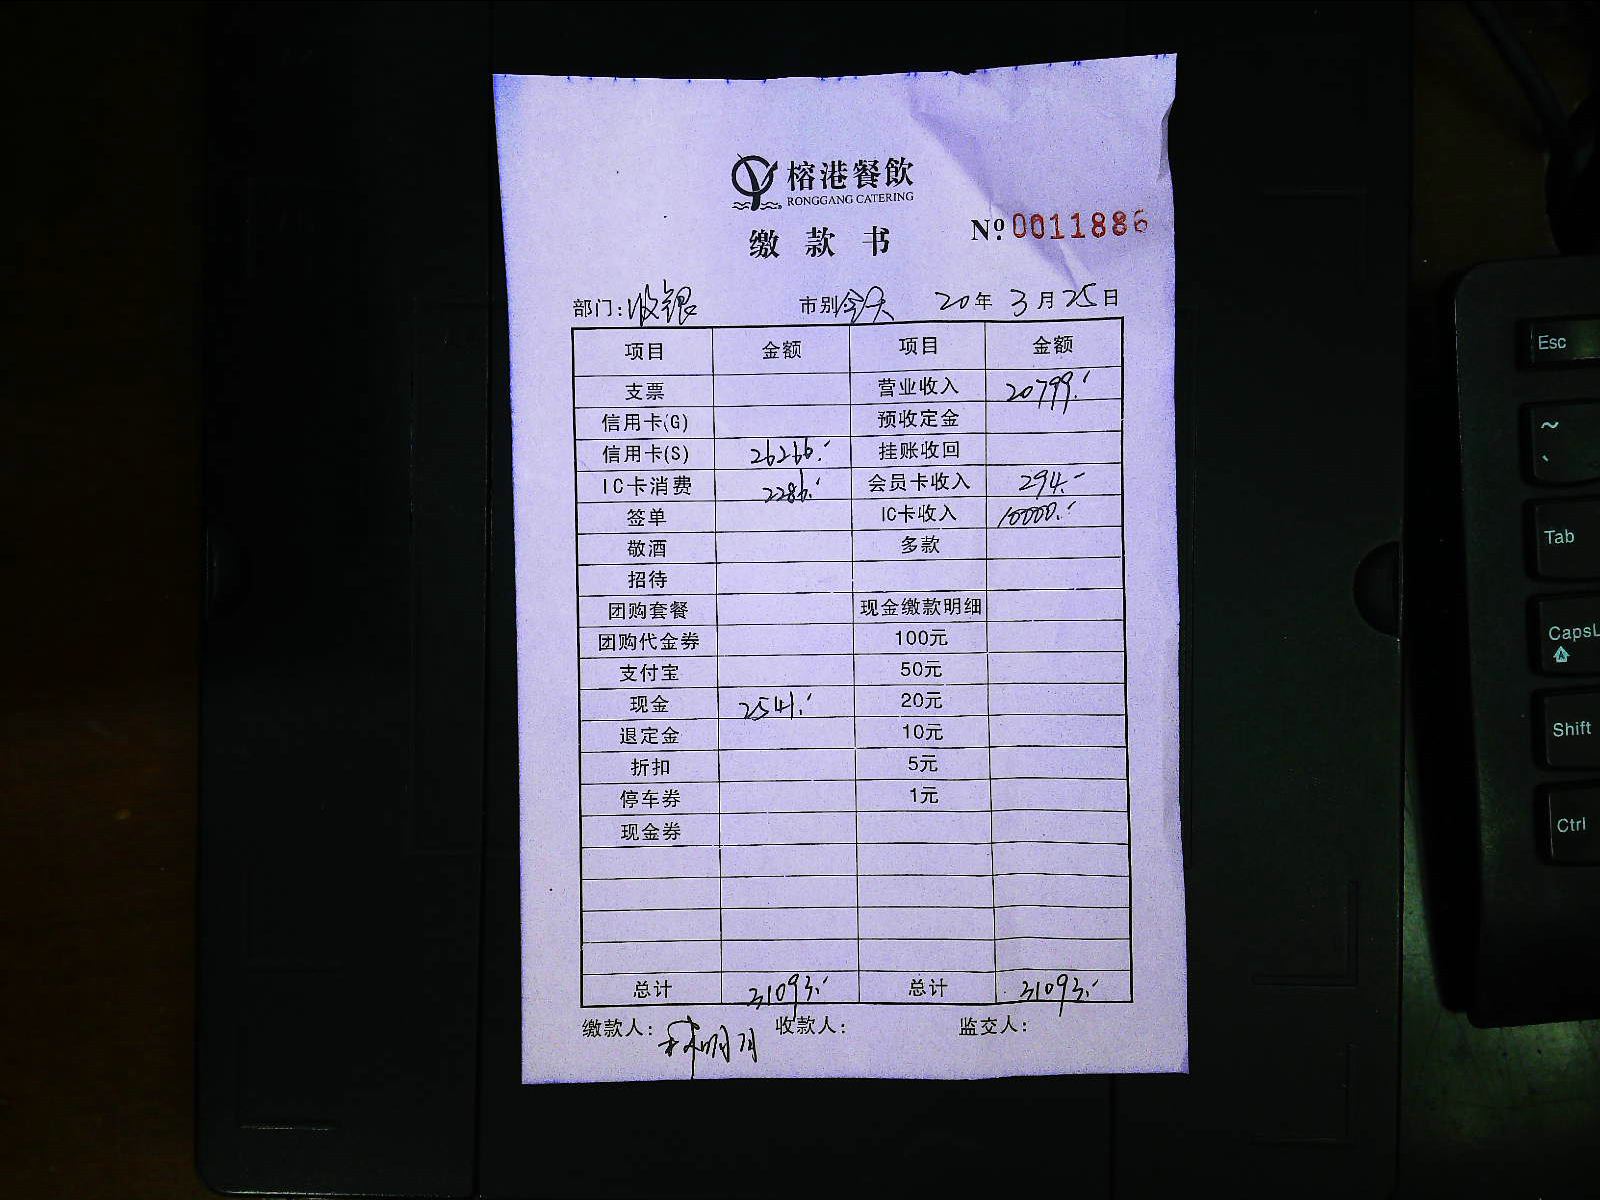 榕港餐飲
RONGGANG CATERING
缴款书
Nº 0011886
部门:收银 市别 全天 20年 3月25日
项目 金额 项目 金额
支票 营业收入 20799.-
信用卡(G) 预收定金
信用卡(S) 26266.- 挂账收回
IC卡消费 2286.- 会员卡收入 294.-
签单 IC卡收入 10000.-
敬酒 多款
招待
团购套餐 现金缴款明细
团购代金券 100元
支付宝 50元
现金 2541.- 20元
退定金 10元
折扣 5元
停车券 1元
现金券
总计 31093.- 总计 31093.-
缴款人: 明月 收款人: 监交人:
Esc
~
、
Tab
CapsL
Shift
Ctrl